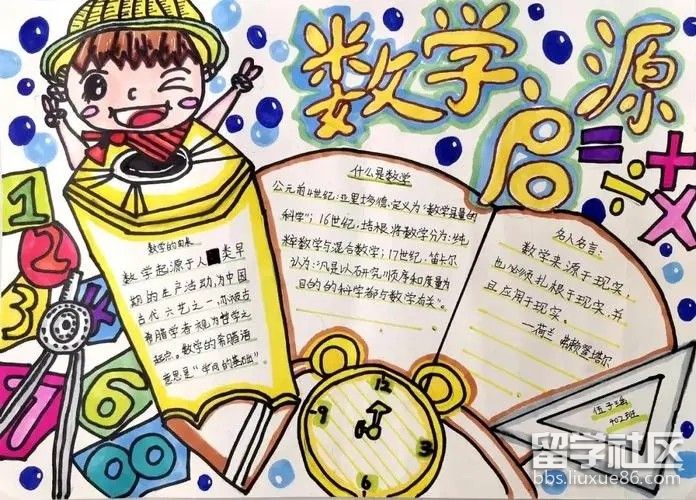 数学、启源
= ÷ + ×
数学的由来
数学起源于人类早
期的生产活动,为中国
古代六艺之一,亦被古
希腊学者视为哲学之
起点。数学的希腊语
意思是“学问的基础”
什么是数学
公元前4世纪,亚里士多德:定义为“数学是量的
科学”;16世纪,培根,将数学分为:“纯
粹数学与混合数学;17世纪,笛卡尔
认为:“凡是以研究顺序和度量为
目的的科学都与数学有关”。
名人名言:
数学来源于现实,
也必须扎根于现实,并
且应用于现实。
一荷兰 弗赖登塔尔
402班
1
2
3
1
6
100
12
3
6
9
留学社区
bbs.liuxue86.com